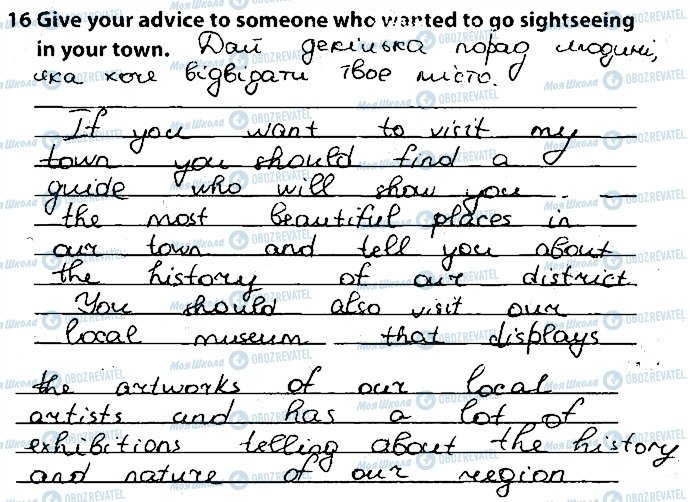 16 Give your advice to someone who wanted to go sightseeing
in your town. Дай декілька порад людині,
яка хоче відвідати твоє місто.
If you want to visit my
town you should find a
guide who will show you
the most beautiful places in
our town and tell you about
the history of our district.
You should also visit our
local museum that displays
the artworks of our local
artists and has a lot of
exhibitions telling about the history
and nature of our region